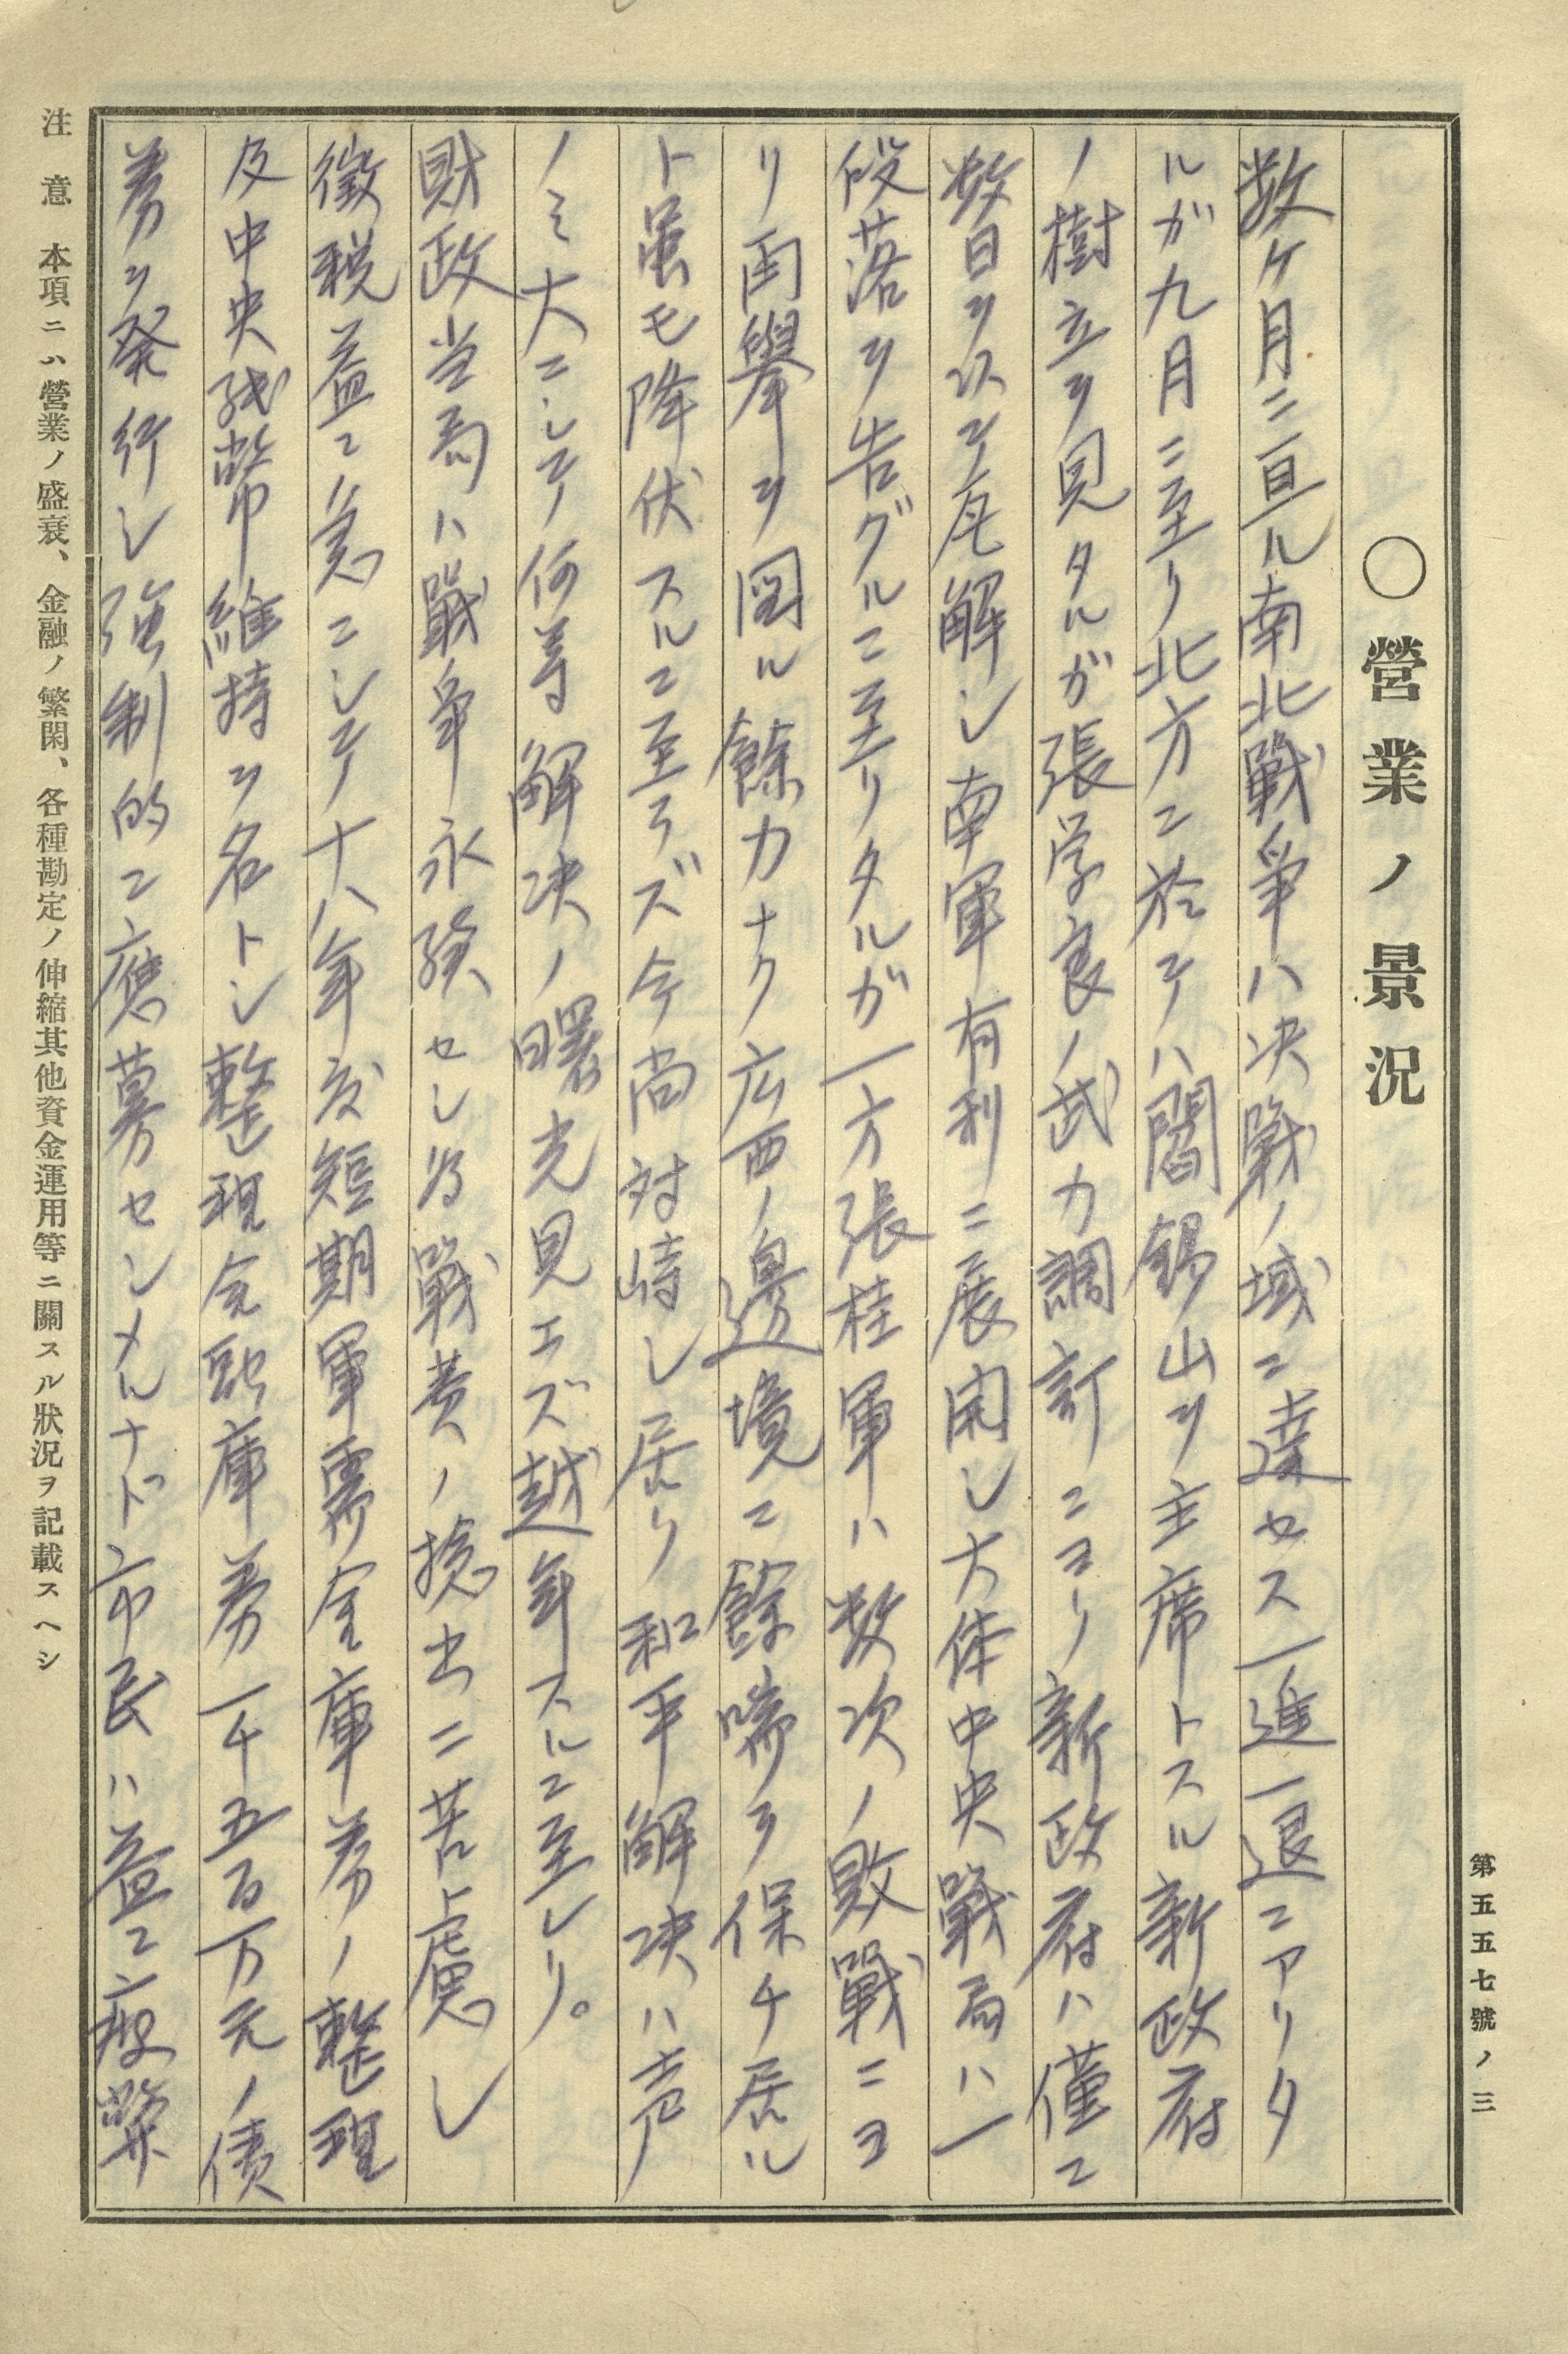 第五五七號ノ三
〇營業ノ景況
数ケ月ニ亘ル南北戰爭ハ决戰ノ域ニ達セス一進一退ニアリタ
ルガ九月ニ至リ北方ニ於テハ閻錫山ヲ主席トスル新政府
ノ樹立ヲ見タルガ張学良ノ武力調訂ニヨリ新政府ハ僅ニ
数日ヲ以テ瓦解シ南軍有利ニ展開シ大体中央戰局ハ一
段落ヲ告グルニ至リタルガ一方張桂軍ハ数次ノ敗戰ニヨ
リ再擧ヲ図ル餘力ナク広西ノ邊境ニ餘喘ヲ保チ居ル
ト虽モ降伏スルニ至ラズ今尚対峙シ居リ和平解决ハ声
ノミ大ニシテ何等解决ノ曙光見エズ越年スルニ至レリ。
財政当局ハ戰争永続セシ為戰費ノ捻出ニ苦慮シ
徴税益ニ急ニシテ十八年度短期軍需金庫券ノ整理
及中央紙幣維持ヲ名トシ整理金融庫券一千五百万元ノ債
券ヲ発行シ強制的ニ應募セシメルナド市民ハ益ニ疲弊
注意 本項ニハ營業ノ盛衰、金融ノ繁閑、各種勘定ノ伸縮其他資金運用等ニ關スル狀況ヲ記載スヘシ